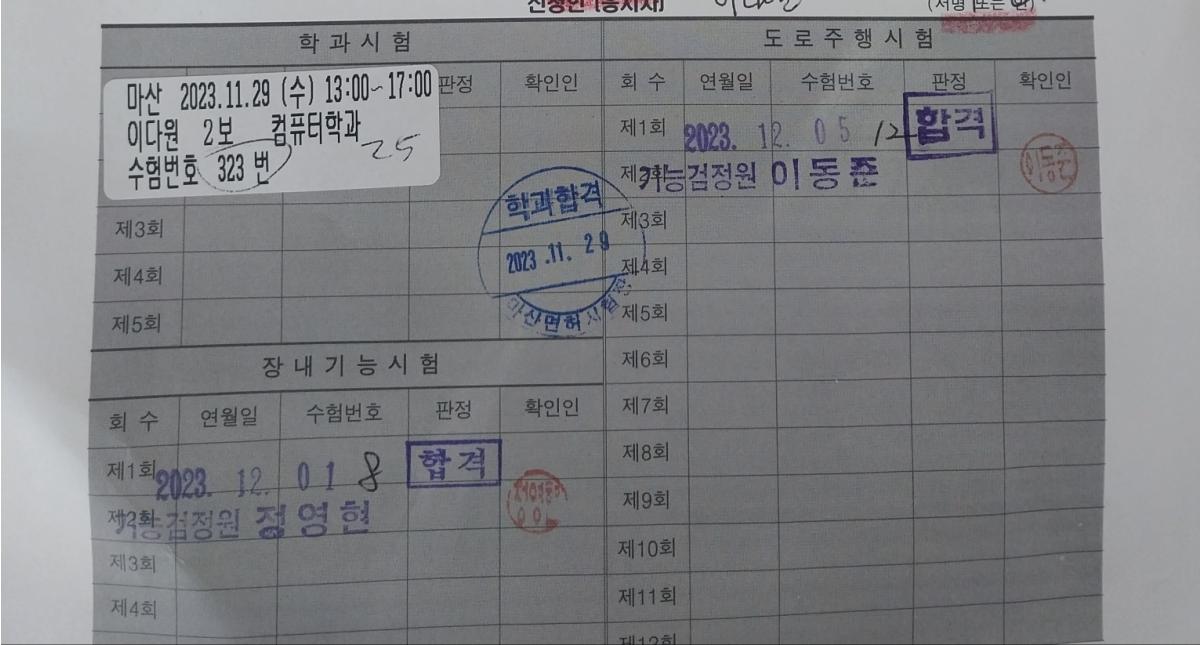 신청인 (응시자) 이다원 (서명 또는 인)
학 과 시 험
판정 확인인
마산 2023.11.29 (수) 13:00~17:00
이다원 2보 컴퓨터학과
수험번호 323 번
25
제3회
제4회
제5회
학과합격
2023.11.29
마산면허시험장
장 내 기 능 시 험
회 수 연월일 수험번호 판정 확인인
제1회 2023. 12. 01 8 합격
제2회 기능검정원 정영현
제3회
제4회
도 로 주 행 시 험
회 수 연월일 수험번호 판정 확인인
제1회 2023. 12. 05 12 합격
제2회 기능검정원 이동준
이동준
제3회
제4회
제5회
제6회
제7회
제8회
제9회
제10회
제11회
제12회